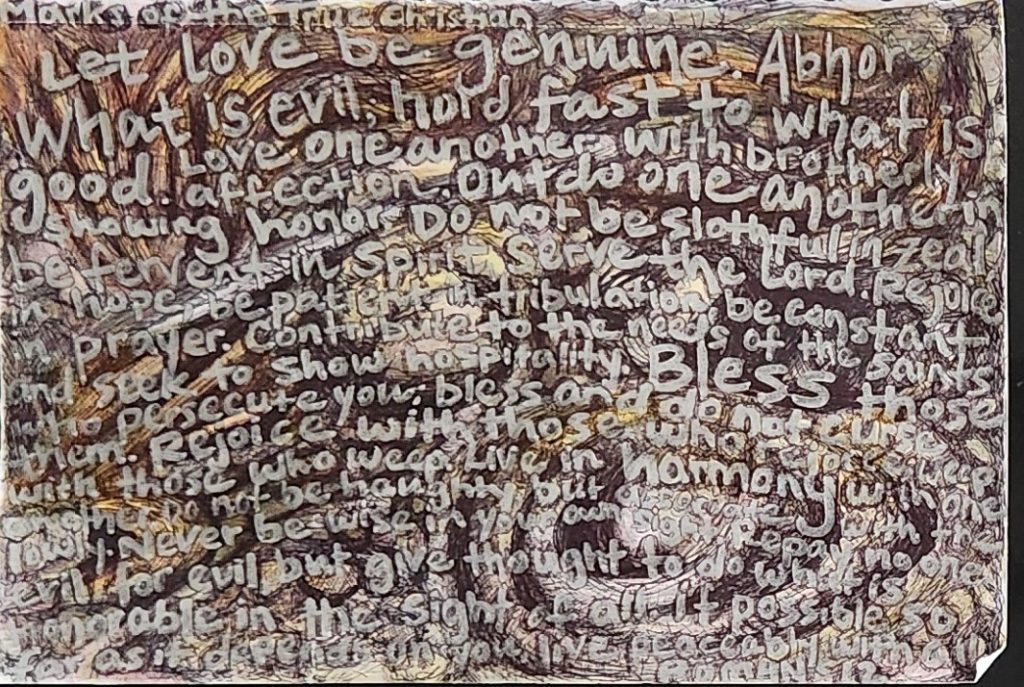 Marks of the True Christian
Let love be genuine. Abhor
what is evil; hold fast to what is
good. Love one another with brotherly
affection. Outdo one another in
showing honor. Do not be slothful in zeal
be fervent in spirit serve the Lord. Rejoice
in hope, be patient in tribulation be constant
in prayer. Contribute to the needs of the saints
and seek to show hospitality. Bless those
who persecute you; bless and do not curse
them. Rejoice with those who rejoice weep
with those who weep. Live in harmony with one
another Do not be haughty but associate with the
lowly. Never be wise in your own sight Repay no one
evil for evil but give thought to do what is
Honorable in the sight of all. If possible so
far as it depends on you, live peaceably with all
ROMANS 12